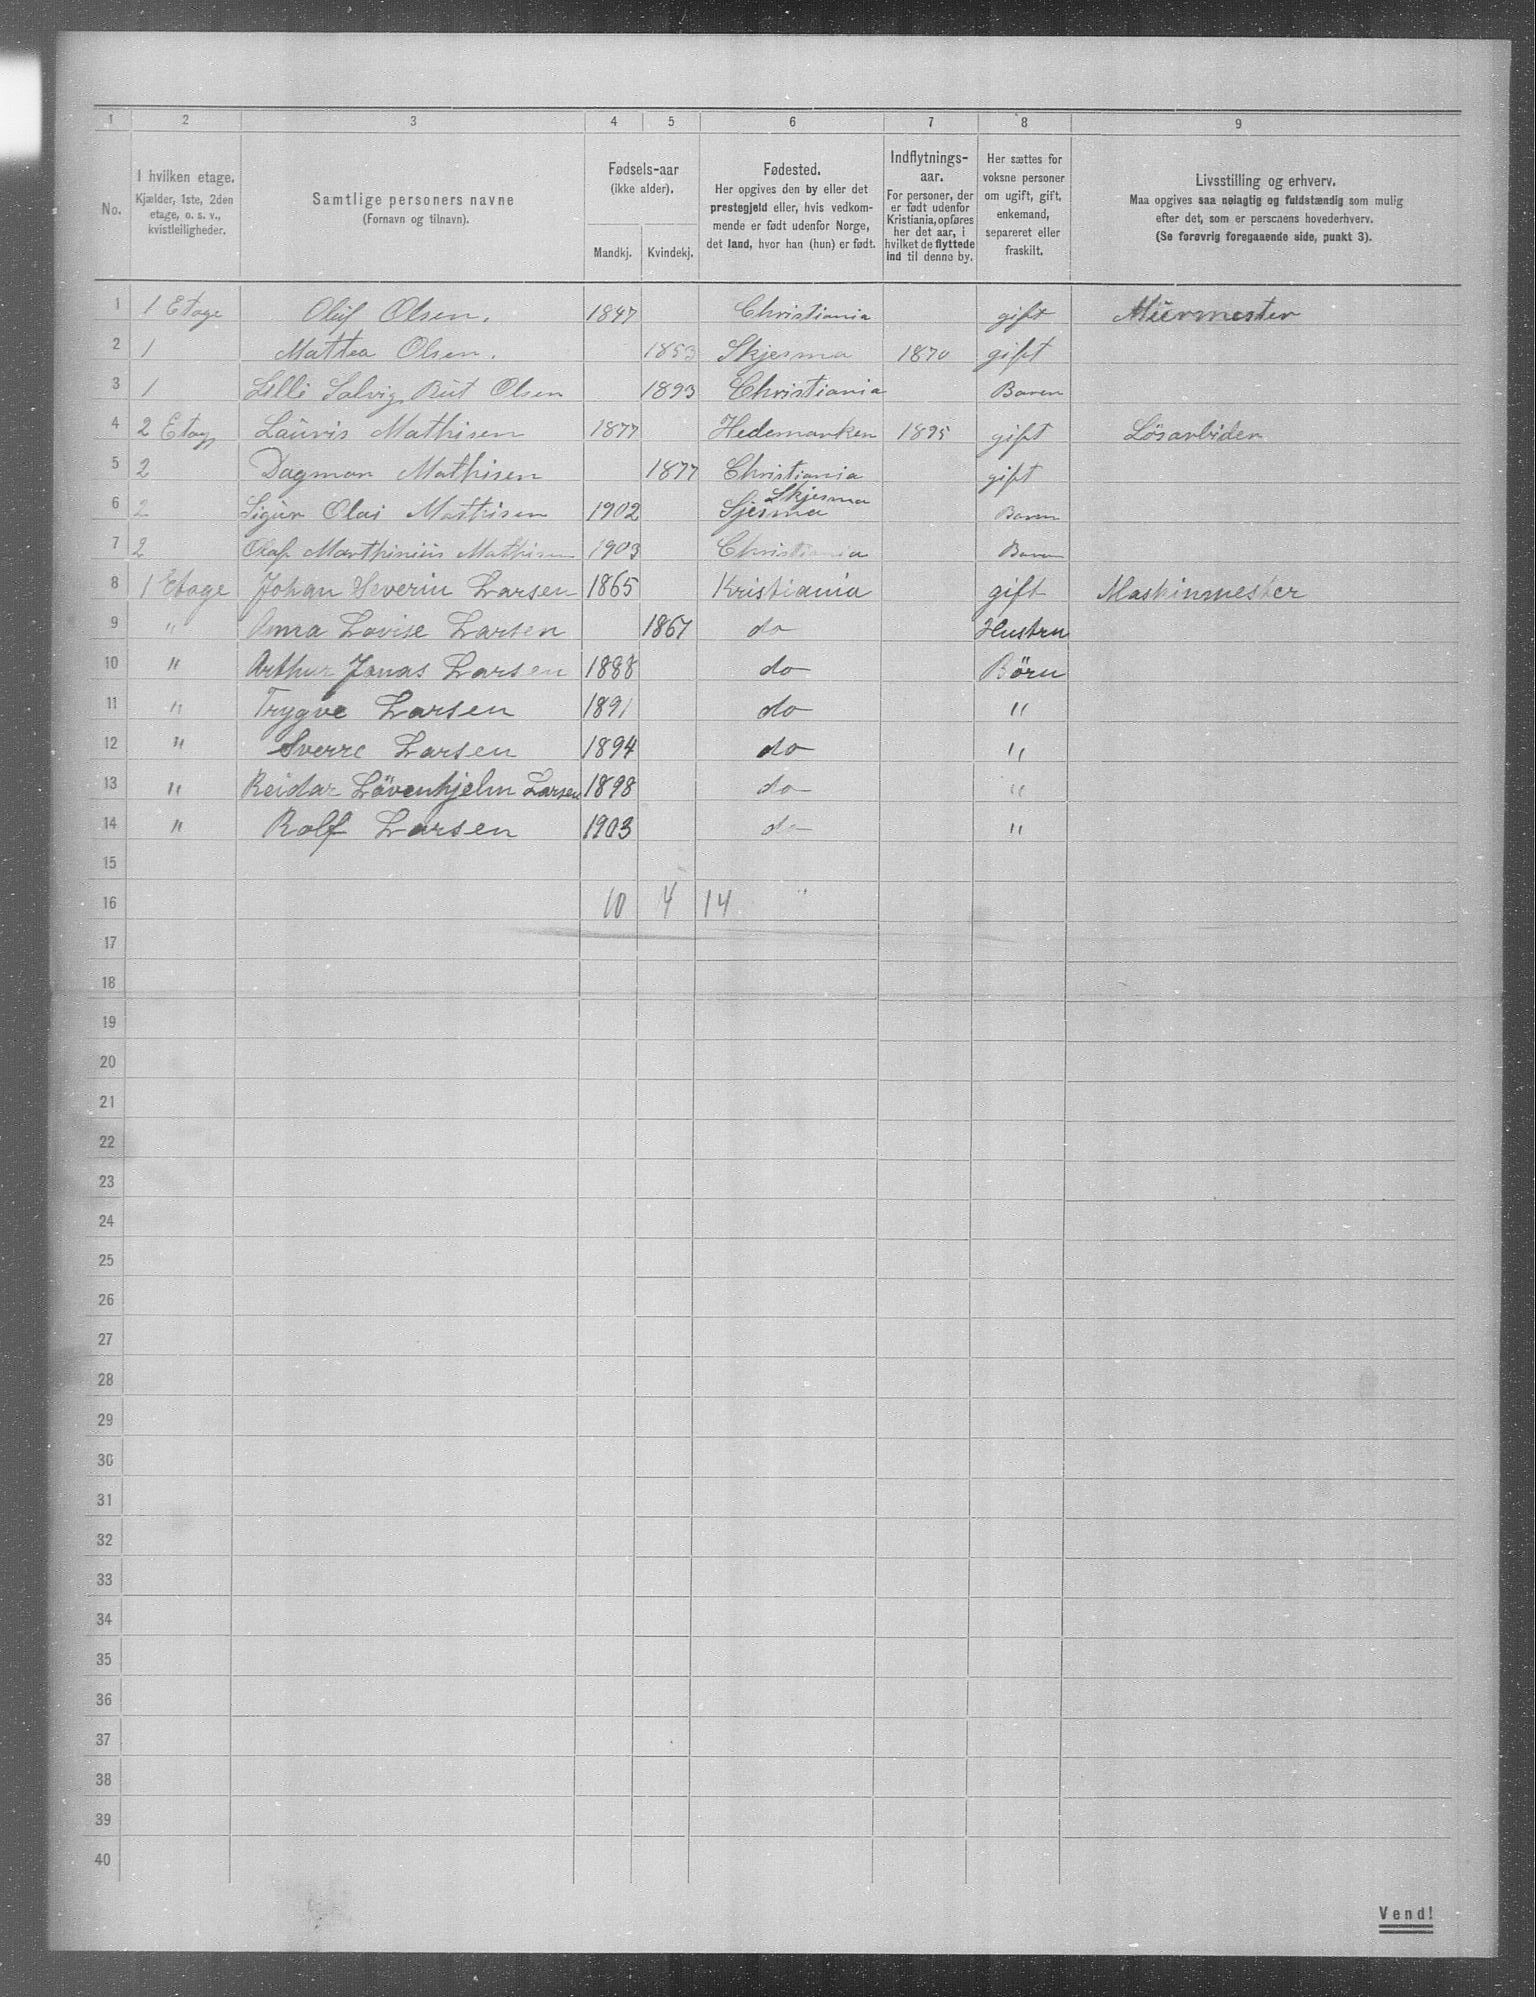 1 2 3 4 5 6 7 8 9
No.
I hvilken etage.
Kjælder, 1ste, 2den
etage, o. s. v.,
kvistleiligheder.
Samtlige personers navne
(Fornavn og tilnavn).
Fødsels-aar
(ikke alder).
Mandkj. Kvindekj.
Fødested.
Her opgives den by eller det
prestegjeld eller, hvis vedkom-
mende er født udenfor Norge,
det land, hvor han (hun) er født.
Indflytnings-
aar.
For personer, der
er født udenfor
Kristiania, opføres
her det aar, i
hvilket de flyttede
ind til denne by.
Her sættes for
voksne personer
om ugift, gift,
enkemand,
separeret eller
fraskilt.
Livsstilling og erhverv.
Maa opgives saa nøiagtig og fuldstændig som mulig
efter det, som er personens hovederhverv.
(Se forøvrig foregaaende side, punkt 3).
1 1 Etage Oluf Olsen. 1847 Christiania gift Muurmester
2 1 Mattea Olsen. 1853 Skjesma 1870 gift
3 1 Lilli Solvig Rut Olsen 1893 Christiania Baren
4 2 Etag Lauris Mathisen 1877 Hedemarken 1895 gift Lösarbider
5 2 Dagmar Mathisen 1877 Christiania gift
6 2 Sigur Olai Mathisen 1902 Sjesma Skjesma Baren
7 2 Olaf Marthinius Mathisen 1903 Christiania Baren
8 1 Etage Johan Severin Larsen 1865 Kristiania gift Maskinmester
9 " Anna Lovise Larsen 1867 do Hustru
10 " Arthur Jonas Larsen 1888 do Börn
11 " Trygve Larsen 1891 do "
12 " Sverre Larsen 1894 do "
13 " Reidar Lövenhjelm Larsen 1898 do "
14 " Rolf Larsen 1903 do "
15
16 10 4 14 "
17
18
19
20
21
22
23
24
25
26
27
28
29
30
31
32
33
34
35
36
37
38
39
40
Vend!